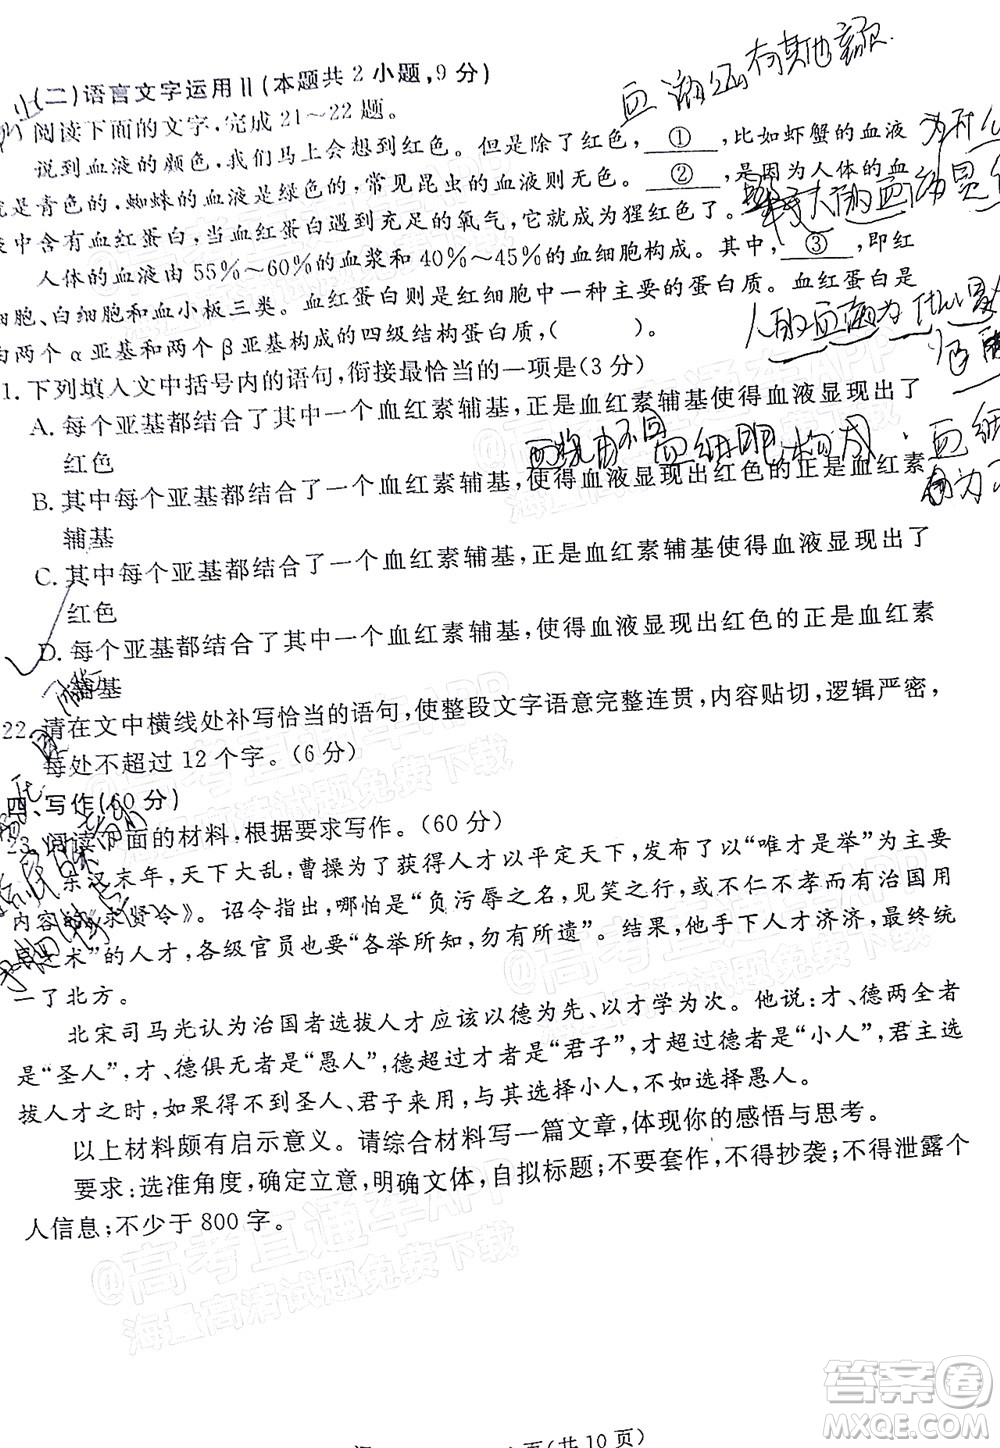 血液还有其他颜色
(二)语言文字运用Ⅱ(本题共2小题,9分)
阅读下面的文字,完成21～22题。
说到血液的颜色,我们马上会想到红色。但是除了红色,①,比如虾蟹的血液
就是青色的,蜘蛛的血液是绿色的,常见昆虫的血液则无色。②,是因为人体的血
液中含有血红蛋白,当血红蛋白遇到充足的氧气,它就成为猩红色了。
人体的血液由55%～60%的血浆和40%～45%的血细胞构成。其中,③,即红
细胞、白细胞和血小板三类。血红蛋白则是红细胞中一种主要的蛋白质。血红蛋白是
由两个α亚基和两个β亚基构成的四级结构蛋白质,( )。
人的血液为什么是
1.下列填入文中括号内的语句,衔接最恰当的一项是(3分)
A.每个亚基都结合了其中一个血红素辅基,正是血红素辅基使得血液显现出了
红色
由不同血细胞构成
B.其中每个亚基都结合了一个血红素辅基,使得血液显现出红色的正是血红素
辅基
C.其中每个亚基都结合了一个血红素辅基,正是血红素辅基使得血液显现出了
红色
D.每个亚基都结合了其中一个血红素辅基,使得血液显现出红色的正是血红素
辅基
22.请在文中横线处补写恰当的语句,使整段文字语意完整连贯,内容贴切,逻辑严密,
每处不超过12个字。(6分)
四、写作(60分)
23.阅读下面的材料,根据要求写作。(60分)
东汉末年,天下大乱,曹操为了获得人才以平定天下,发布了以“唯才是举”为主要
内容的《求贤令》。诏令指出,哪怕是“负污辱之名,见笑之行,或不仁不孝而有治国用
兵之术”的人才,各级官员也要“各举所知,勿有所遗”。结果,他手下人才济济,最终统
一了北方。
北宋司马光认为治国者选拔人才应该以德为先、以才学为次。他说:才、德两全者
是“圣人”,才、德俱无者是“愚人”,德超过才者是“君子”,才超过德者是“小人”,君主选
拔人才之时,如果得不到圣人、君子来用,与其选择小人,不如选择愚人。
以上材料颇有启示意义。请综合材料写一篇文章,体现你的感悟与思考。
要求:选准角度,确定立意,明确文体,自拟标题;不要套作,不得抄袭;不得泄露个
人信息;不少于800字。
页(共10页)
@高考直通车APP
海量高清试题免费下载
答案卷
MXQE.COM